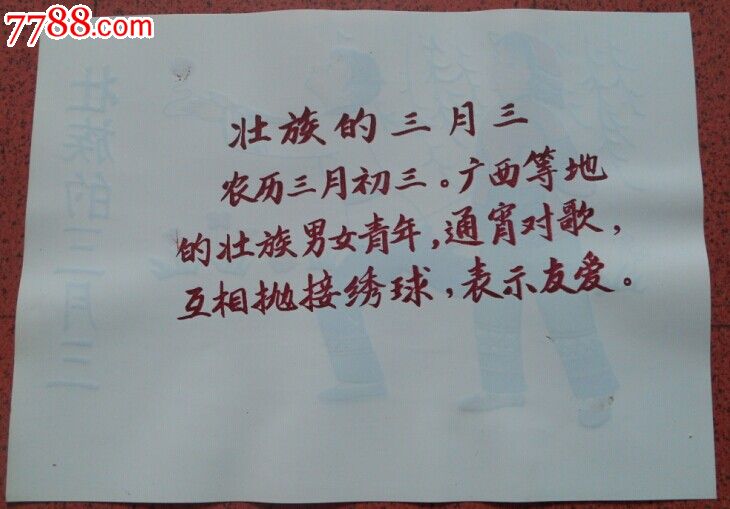 7788.com
壮族的三月三
农历三月初三。广西等地
的壮族男女青年,通宵对歌,
互相抛接绣球,表示友爱。
壮族的三月三